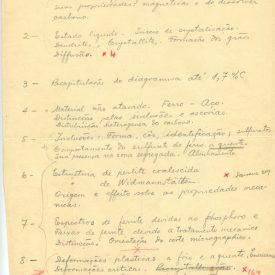 suas propriedades? magneticas e de dissolver
carbono.
2 - Estado liquido - Inicio de crystalização.
Dendrite, Crystallite, Formação dos grãos
Diffusão. x 4
3 - Recapitulação de diagramma até 1,7 % C
4 - Material não atacado. Ferro - Aço.
Distincções pelas inclusões e escorias
Distribuição heterogenea do carbono.
5 - Inclusões - Forma, côr, identificação; sulfuretos
Comportamento do sulfureto de ferro a quente.
Sua presença na zona segregada.
6 - Estructura de perlite coalescida x
" de Widmannstätten
Origem e effeito sobre as propriedades meca-
nicas.
7 - Espectros de ferrite devidos ao phosphoro e
Faixas de ferrite devido a tratamento mecanico
Distincções. Orientação do corte micrographico.
8 - Deformações plasticas a frio e a quente,
Deformações criticas.